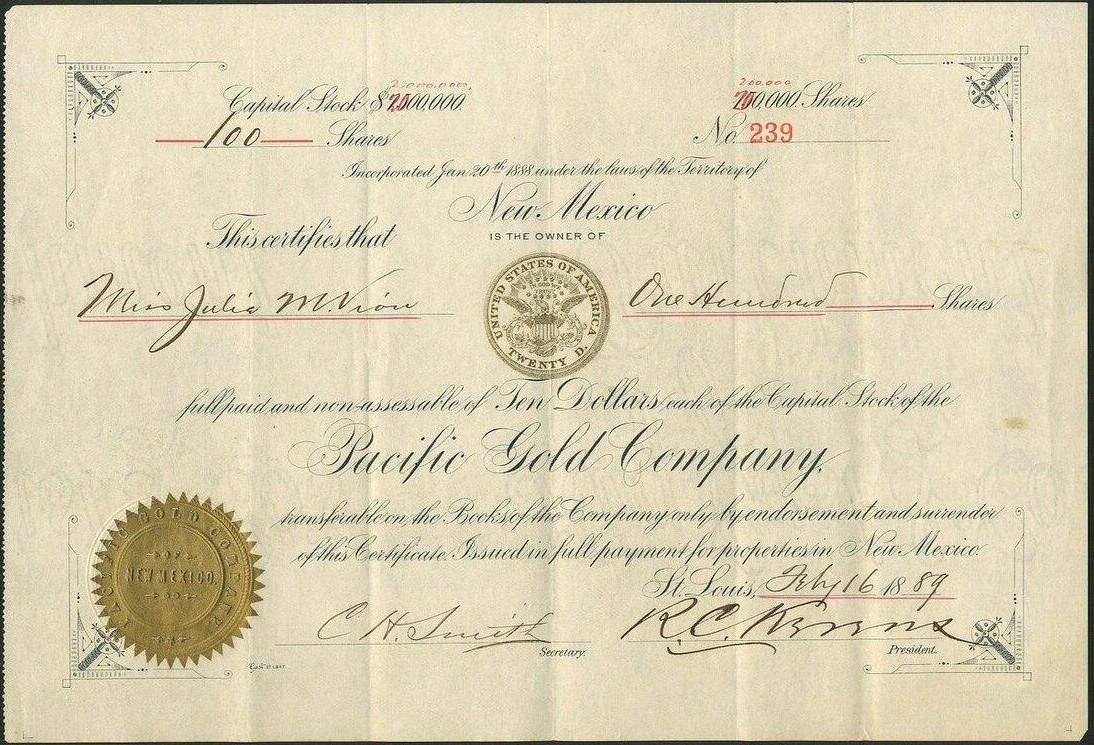 2.000.000.
200.000
Capital Stock $7,500.000. 750,000. Shares
100 Shares No. 239
Incorporated Jan. 20th 1888 under the laws of the Territory of
New Mexico
This certifies that
IS THE OWNER OF
Miss Julia M. One Hundred Shares
UNITED STATES OF AMERICA
IN GOD WE TRUST
TWENTY D.
full paid and non-assessable of Ten Dollars each of the Capital Stock of the
Pacific Gold Company,
transferable on the Books of the Company only by endorsement and surrender
of this Certificate. Issued in full payment for properties in New Mexico.
St. Louis, Feby 16 1889
PACIFIC GOLD COMPANY
NEW MEXICO.
C. H. Smith R. C. Kerens
Secretary. President.